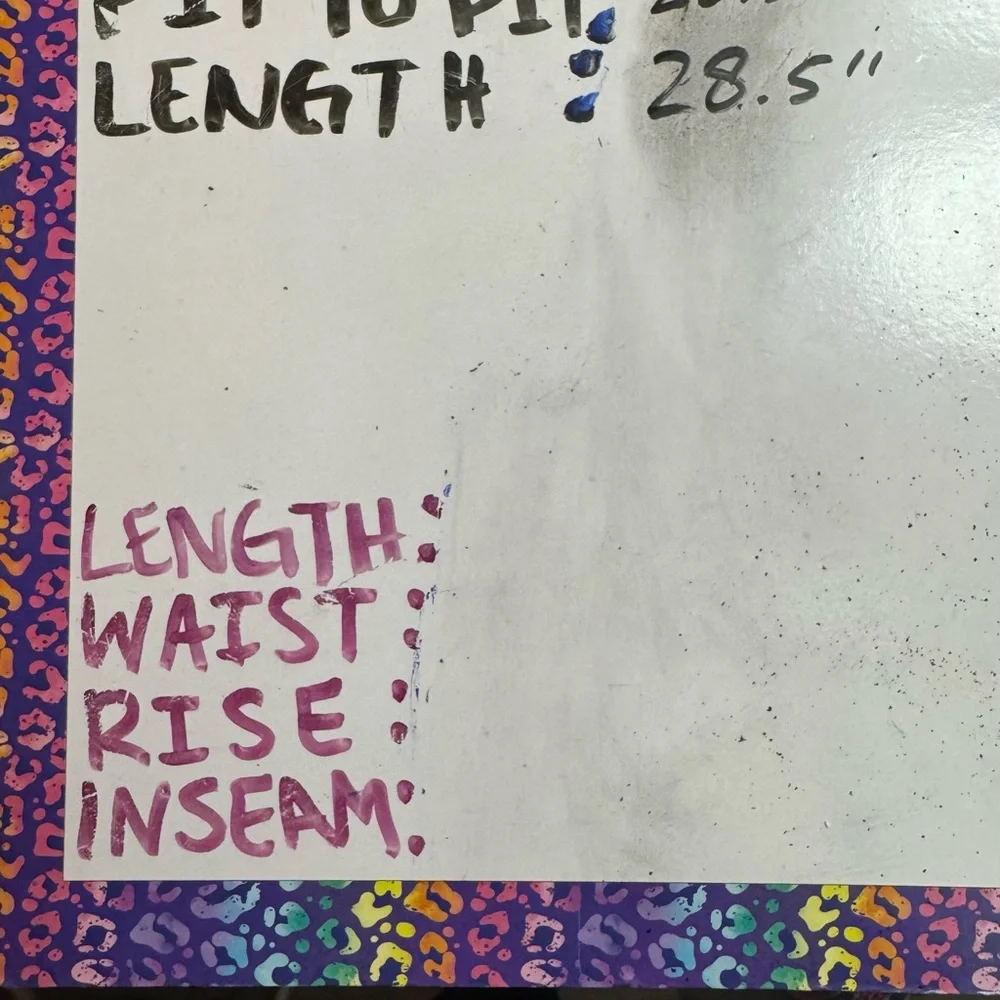 PIT TO PIT:
LENGTH : 28.5"
LENGTH:
WAIST :
RISE :
INSEAM: